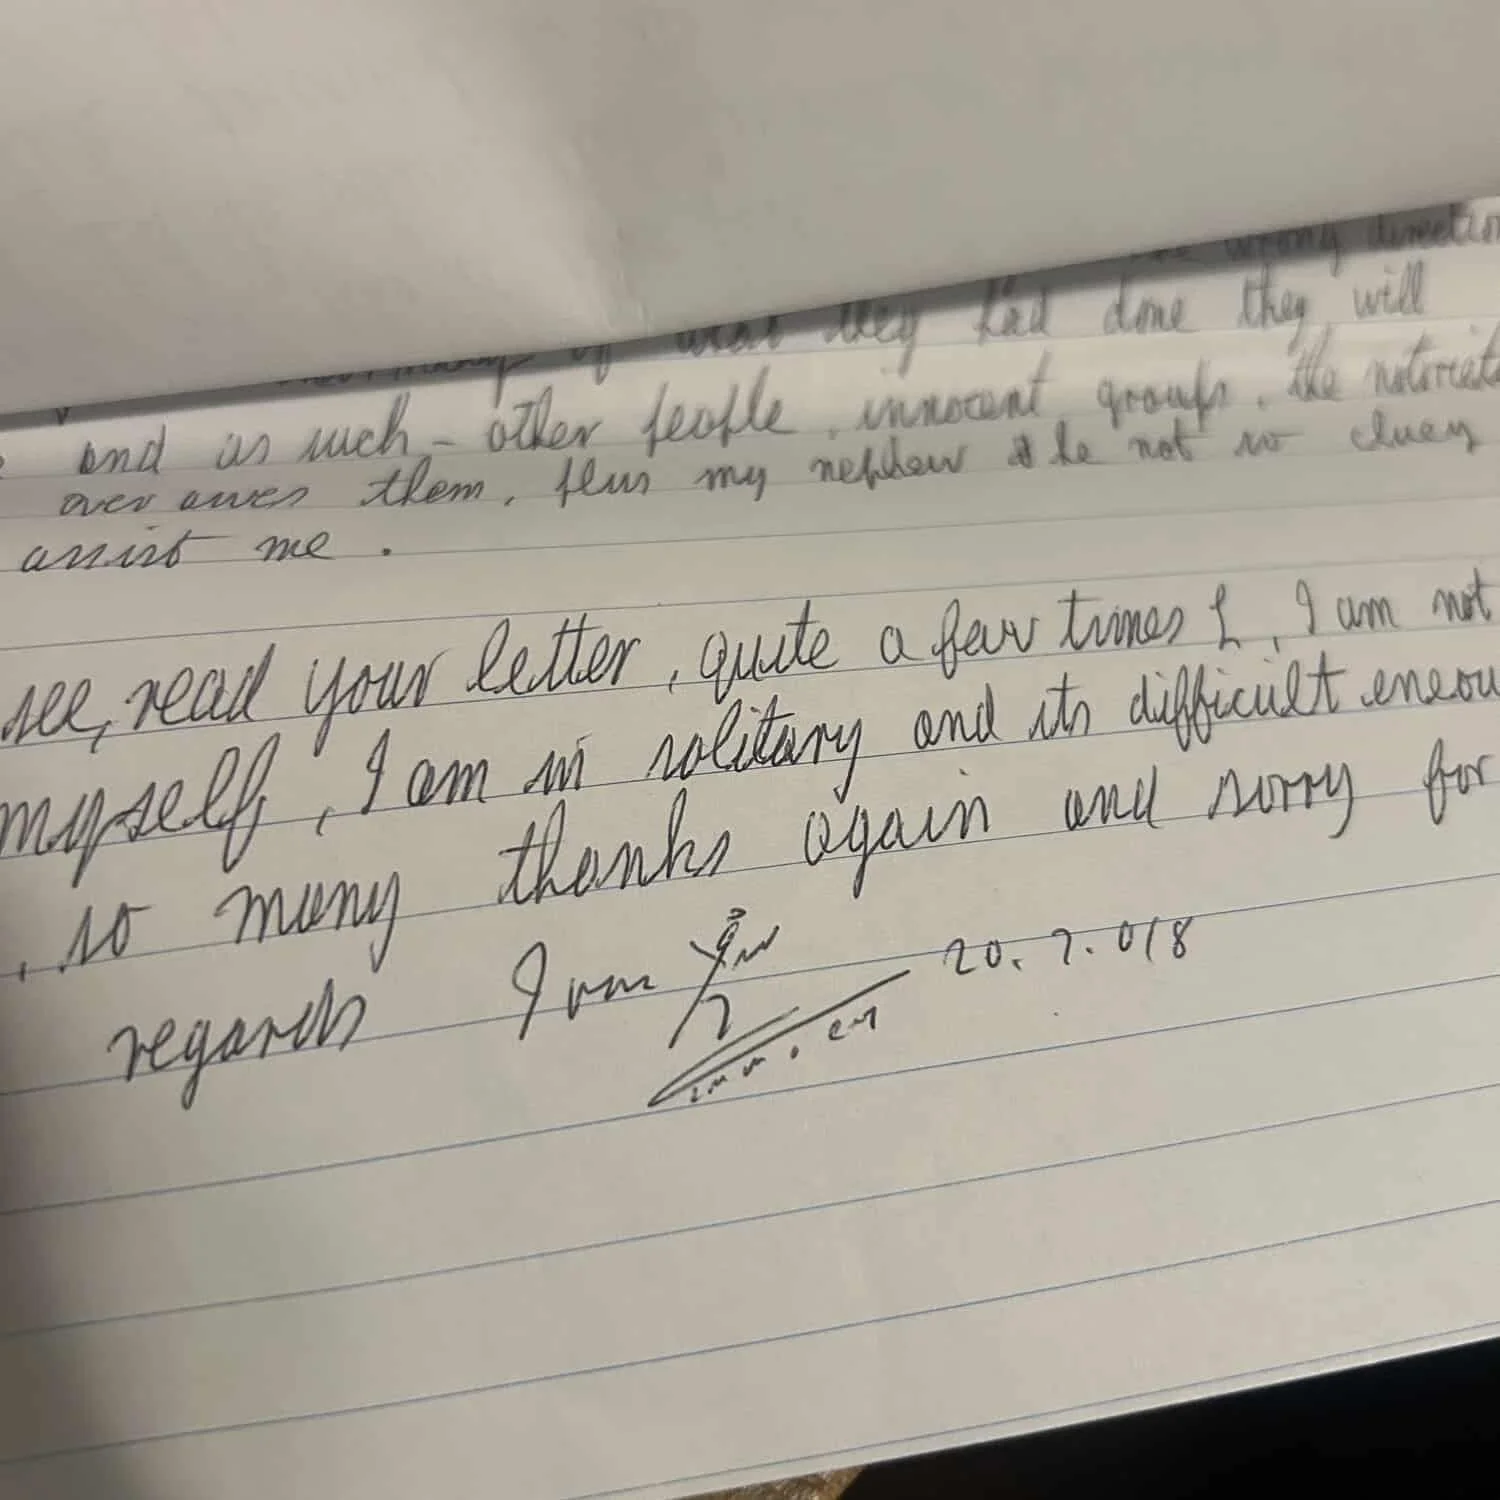 wrong direction
what they had done they will
and as such - other people, innocent groups, the
over awes them, plus my nephew he not so
assist me.
see, read your letter, quite a few times I, I am not
myself, I am in solitary and its difficult
, so many thanks again and sorry for
regards Ivan
20.7.018